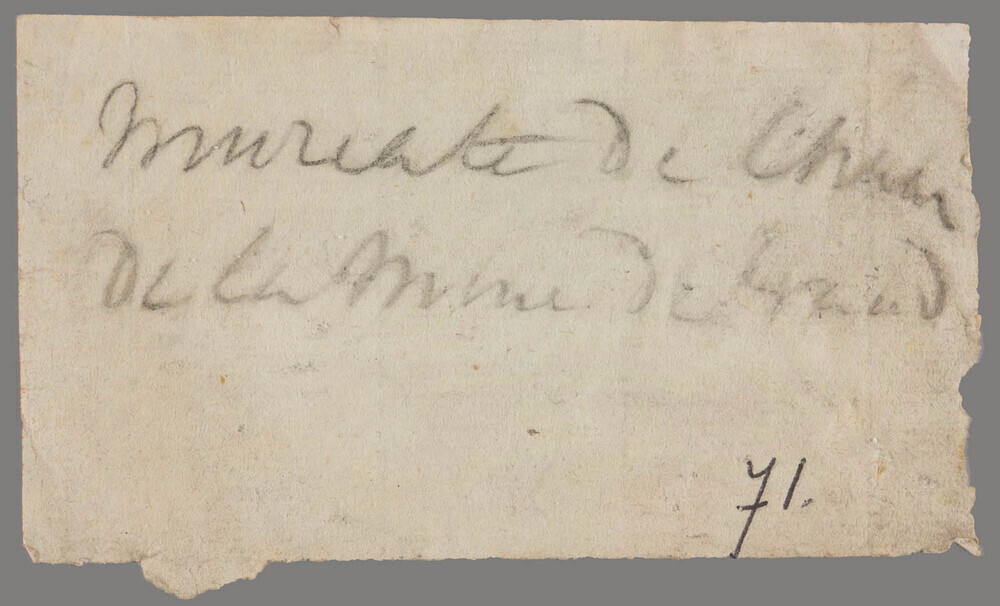 Muriate de chaux
de la Mine de
71.